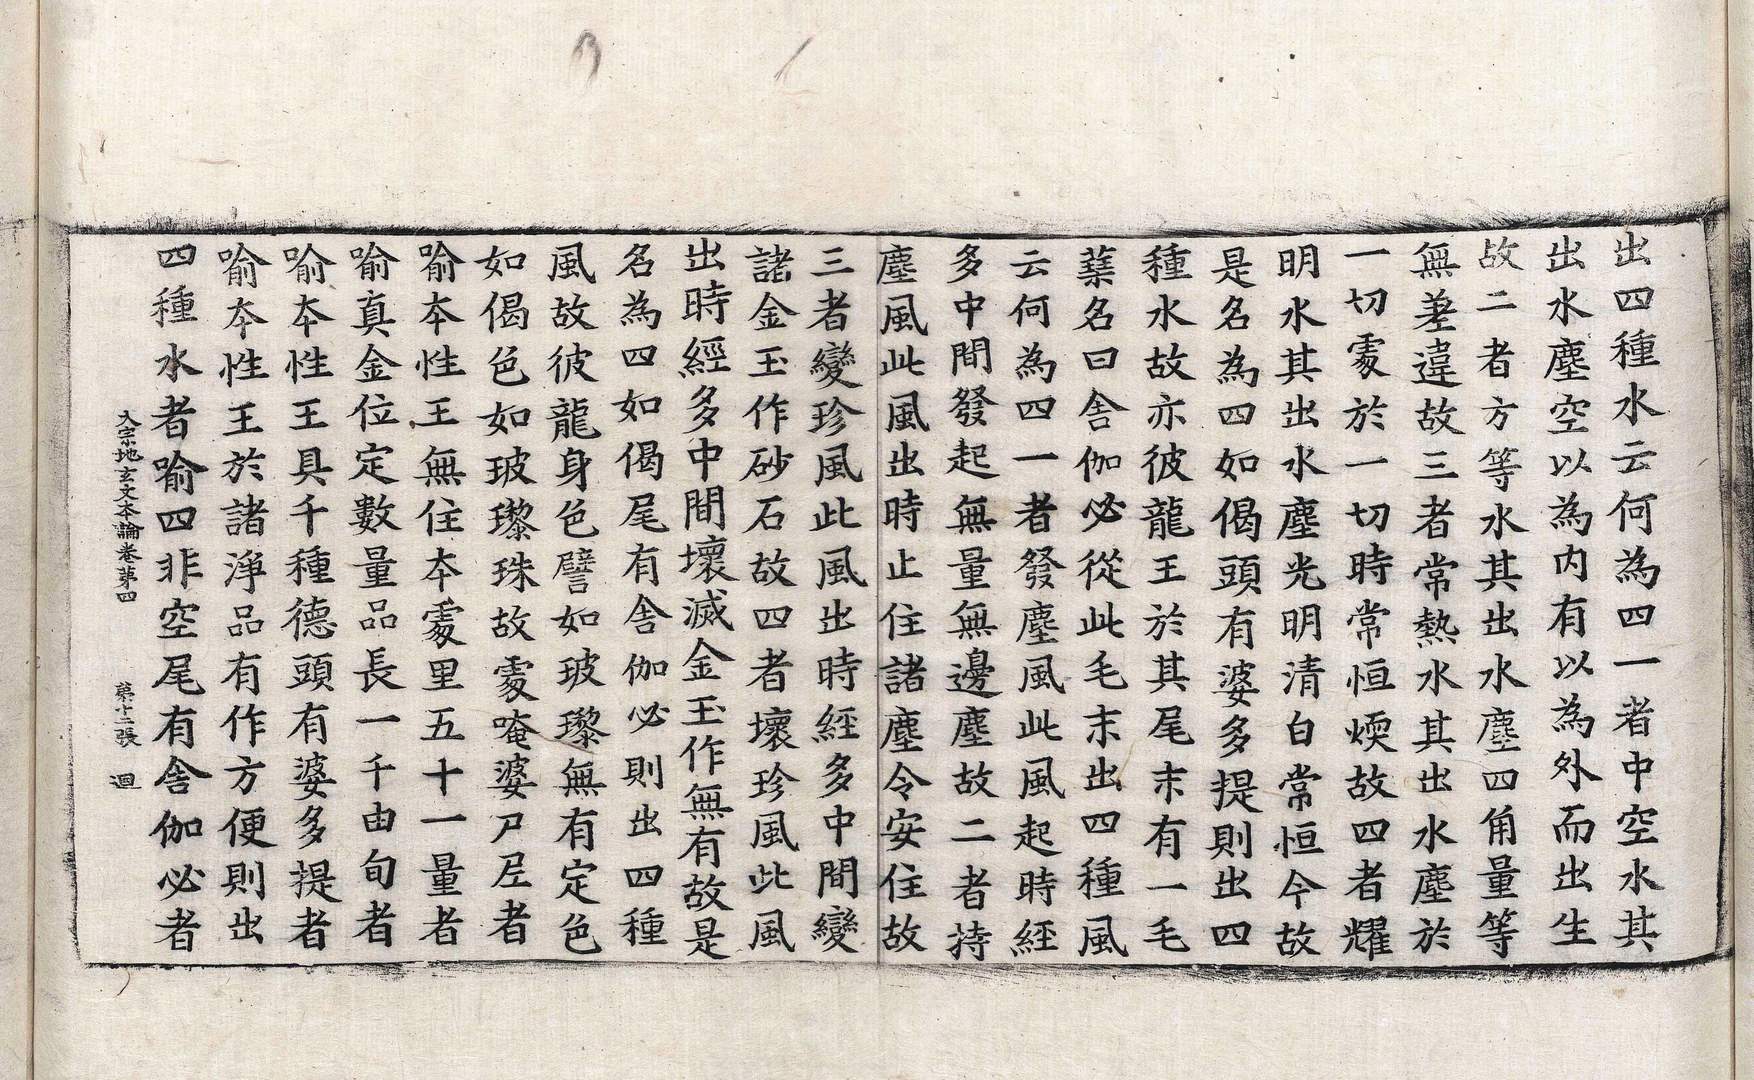 出四種水云何為四一者中空水其
出水塵空以為內有以為外而出生
故二者方等水其出水塵四角量等
無差違故三者常熱水其出水塵於
一切處於一切時常恒煗故四者耀
明水其出水塵光明清白常恒今故
是名為四如偈頭有婆多提則出四
種水故亦彼龍王於其尾末有一毛
蘂名曰舍伽必從此毛末出四種風
云何為四一者發塵風此風起時經
多中間發起無量無邊塵故二者持
塵風此風出時止住諸塵令安住故
三者變珍風此風出時經多中間變
諸金玉作砂石故四者壞珍風此風
出時經多中間壞滅金玉作無有故是
名為四如偈尾有舍伽必則出四種
風故彼龍身色譬如玻瓈無有定色
如偈色如玻瓈珠故處唵婆尸𡰱者
喻本性王無住本處里五十一量者
喻真金位定數量品長一千由旬者
喻本性王具千種德頭有婆多提者
喻本性王於諸淨品有作方便則出
四種水者喻四非空尾有舍伽必者
大宗地玄文本論卷第四 第十二張 迴